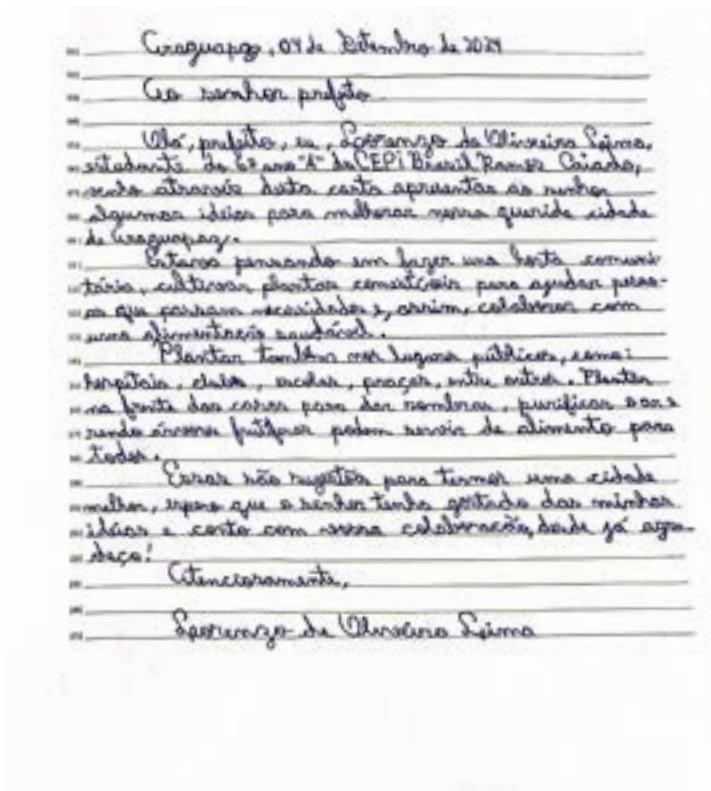 Araguapaz, 04 de Setembro de 2024
Ao senhor prefeito
Olá, prefeito, eu, Lorenzo de Oliveira Leima,
estudante do 6º ano "A" do CEPI Brasil Ramos Caiado,
venho através desta carta apresentar ao senhor
algumas ideias para melhorar nossa querida cidade
de Araguapaz.
Estava pensando em fazer uma horta comuni
tária, cultivar plantas comestíveis para ajudar pesso-
as que passam necessidades e, assim, colaborar com
uma alimentação saudável.
Plantar também nos lugares públicos, como:
hospitais, clubes, escolas, praças, entre outros. Plantar
na frente das casas para dar sombras, purificar o ar e
sendo árvores frutíferas podem servir de alimento para
todos.
Essas são sugestões para termos uma cidade
melhor, espero que o senhor tenha gostado das minhas
idéias e conto com vossa colaboração, desde já agra-
deço!
Atenciosamente,
Lorenzo de Oliveira Leima